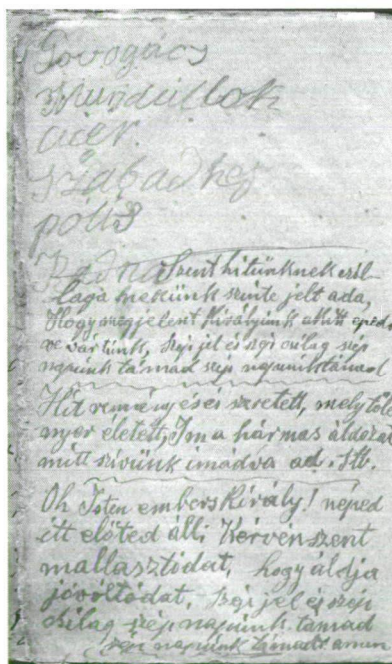 Govogács
Mundallok
szabadhej
polus
Radna
Szent hitünknek csil
laga nekünk szinte jelt ada,
Hogy megjelent Királyunk akitt eped
ve vártunk, szép jel és szép csilag szép
napunk támad szép napunk támad
Hit reményés és szeretett, mely től
nyer életett, Im a hármas áldozat
mitt szívünk imádva ad. Stb.
Oh Isten embers Király! néped
itt előted álli Kérvén szent
mallasztódat, hogy áldja
jóvóltódat. Szép jel és szép
csilag szép napunk támad
szép napunk támadt